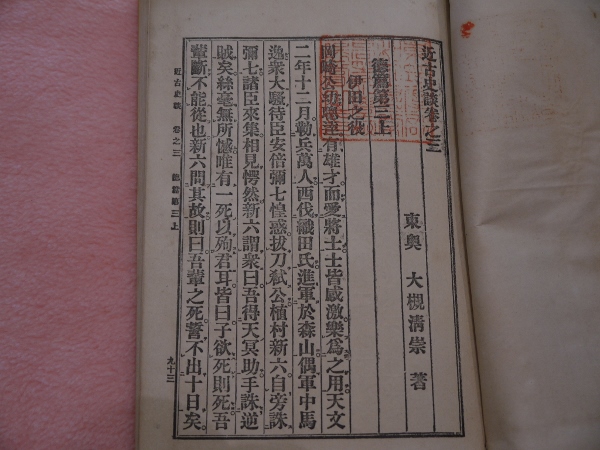 近古史談卷之三
東奥 大槻淸崇 著
德篇第三上
伊田之役
岡崎公幼聰達有雄才而愛將士士皆感激樂爲之用天文
二年十二月勒兵萬人西伐織田氏進軍於森山偶軍中馬
逸衆大騷侍臣安倍彌七惶惑拔刀弑公植村新六自旁誅
彌七諸臣來集相見愕然新六謂衆曰吾得天冥助手誅逆
賊矣絲毫無所憾唯有一死以殉君耳皆曰子欲死則死吾
輩斷不能從也新六問其故則曰吾輩之死誓不出十日矣
近古史談 卷之三 德篇第三上
九十三